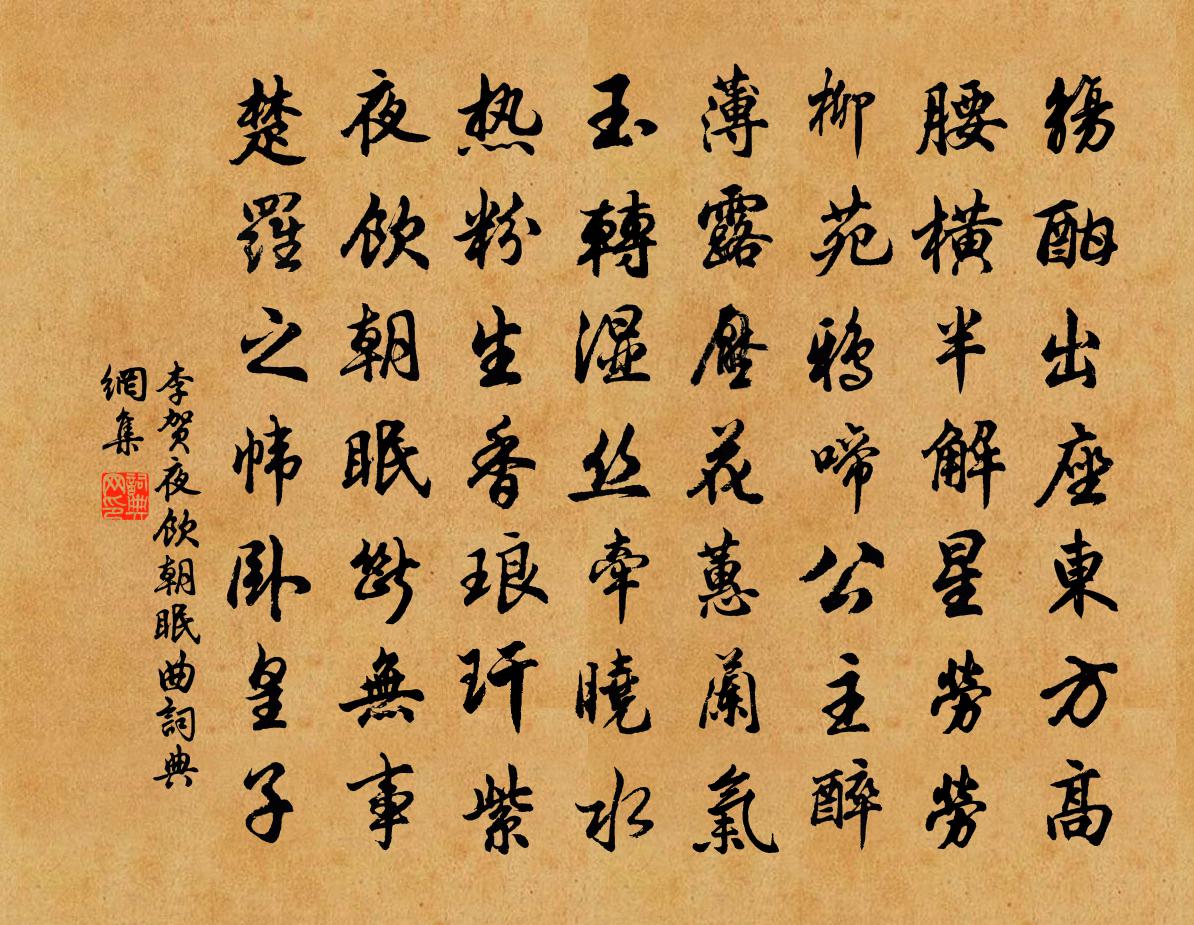 觴酣出座東方高
腰橫半解星勞勞
柳苑鴉啼公主醉
薄露壓花蕙蘭氣
玉轉濕丝牽曉水
热粉生香琅玕紫
夜飲朝眠斷無事
楚羅之帏卧皇子
李贺夜飲朝眠曲詞典
網集
詞典
网印